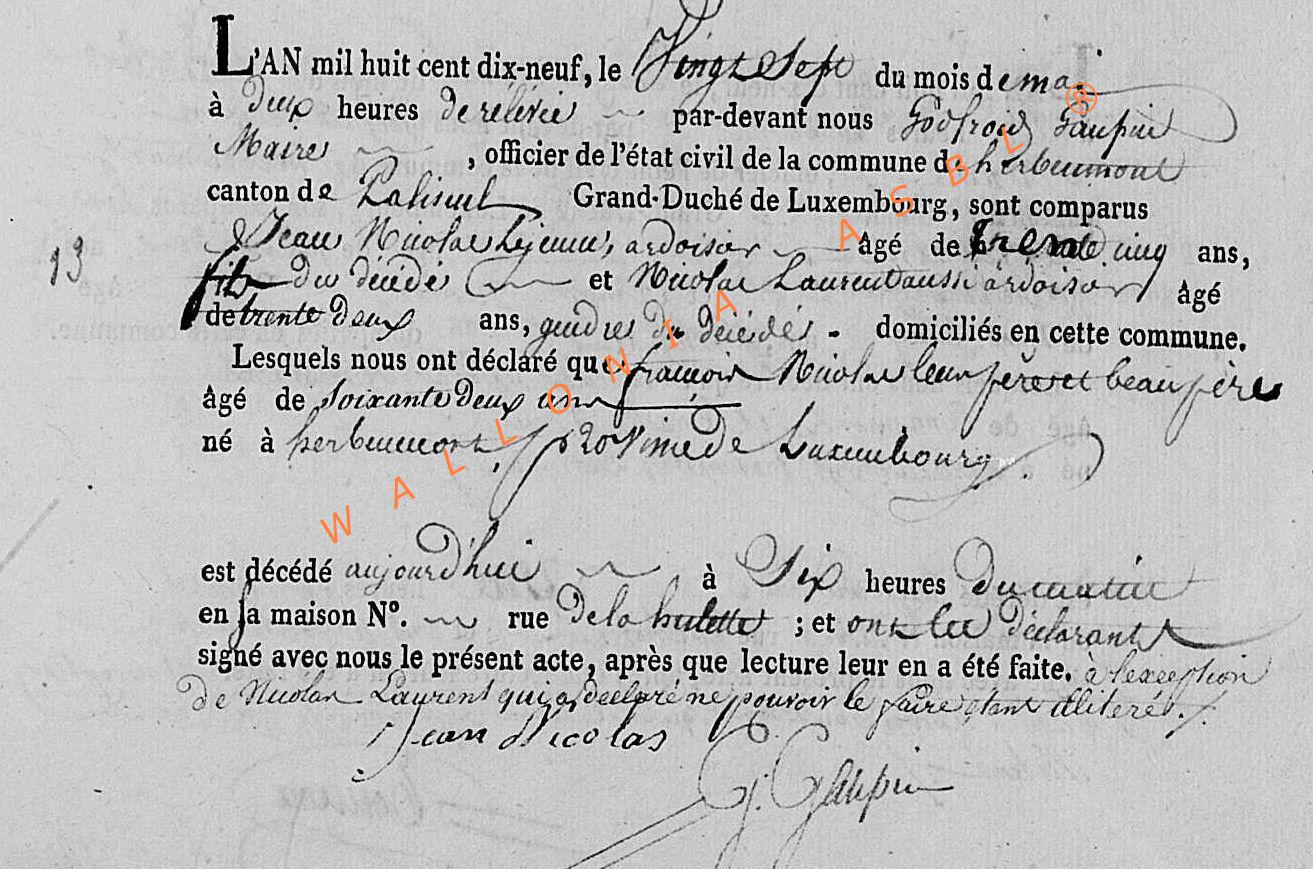 L'AN mil huit cent dix-neuf, le Vingt Sept du mois de mai
à deux heures de rélévée par-devant nous Godfroid Gaupin
Maire , officier de l'état civil de la commune de herbeumont
canton de Paliseul Grand-Duché de Luxembourg, sont comparus
Jean Nicolas lejeune, ardoisier âgé de trente cinq ans,
13
fils du décédé et Nicolas Laurent aussi ardoisier âgé
de trente deux ans, gendres du décédés - domiciliés en cette commune.
Lesquels nous ont déclaré que françois Nicolas leur père et beau père
âgé de soixante deux ans
né à herbeumont, province de Luxembourg.
est décédé aujourd'hui à Six heures du matin
en sa maison N°. rue de la hulette ; et ont les déclarants
signé avec nous le présent acte, après que lecture leur en a été faite. à l'exception
de Nicolas Laurent qui a declaré ne pouvoir le faire etant illiteré.
Jean Nicolas
G. Gaupin
WALLONIA ASBL ®